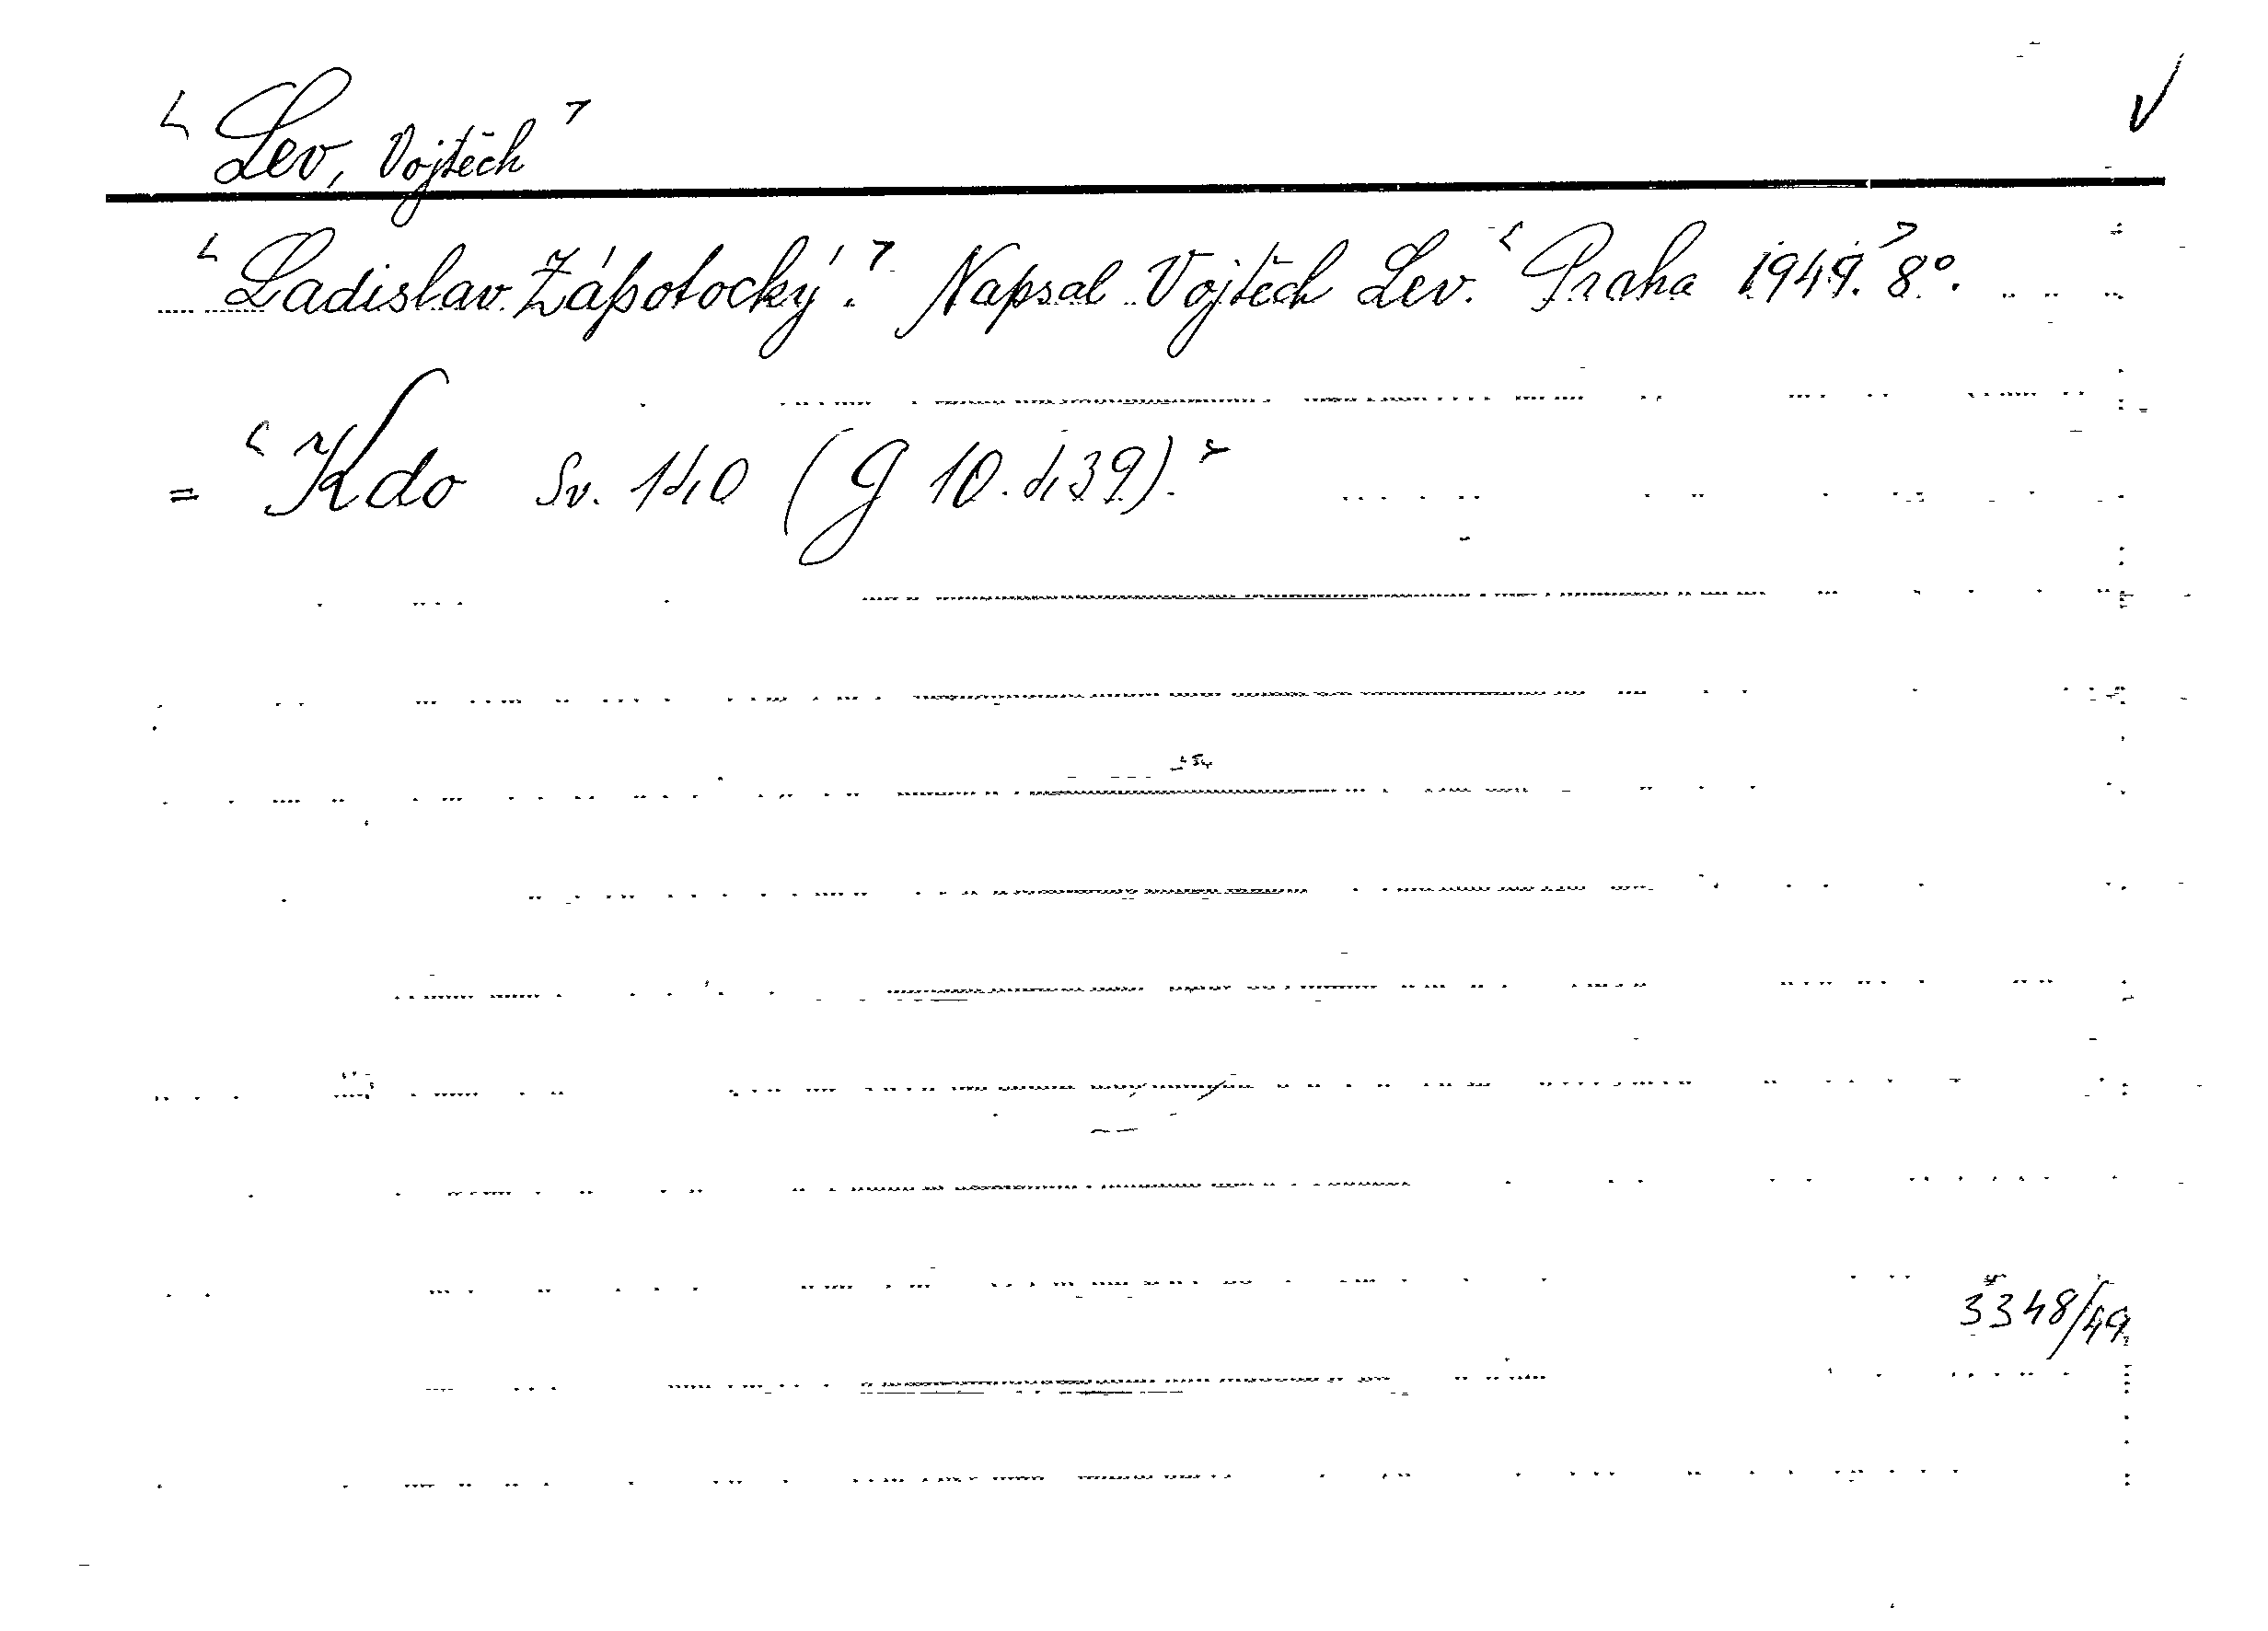 Lev, Vojtěch
Ladislav Zápotocký. Napsal Vojtěch Lev. Praha 1949. 8°.
= Kdo Sv. 140 (G 10.439).
3348/49